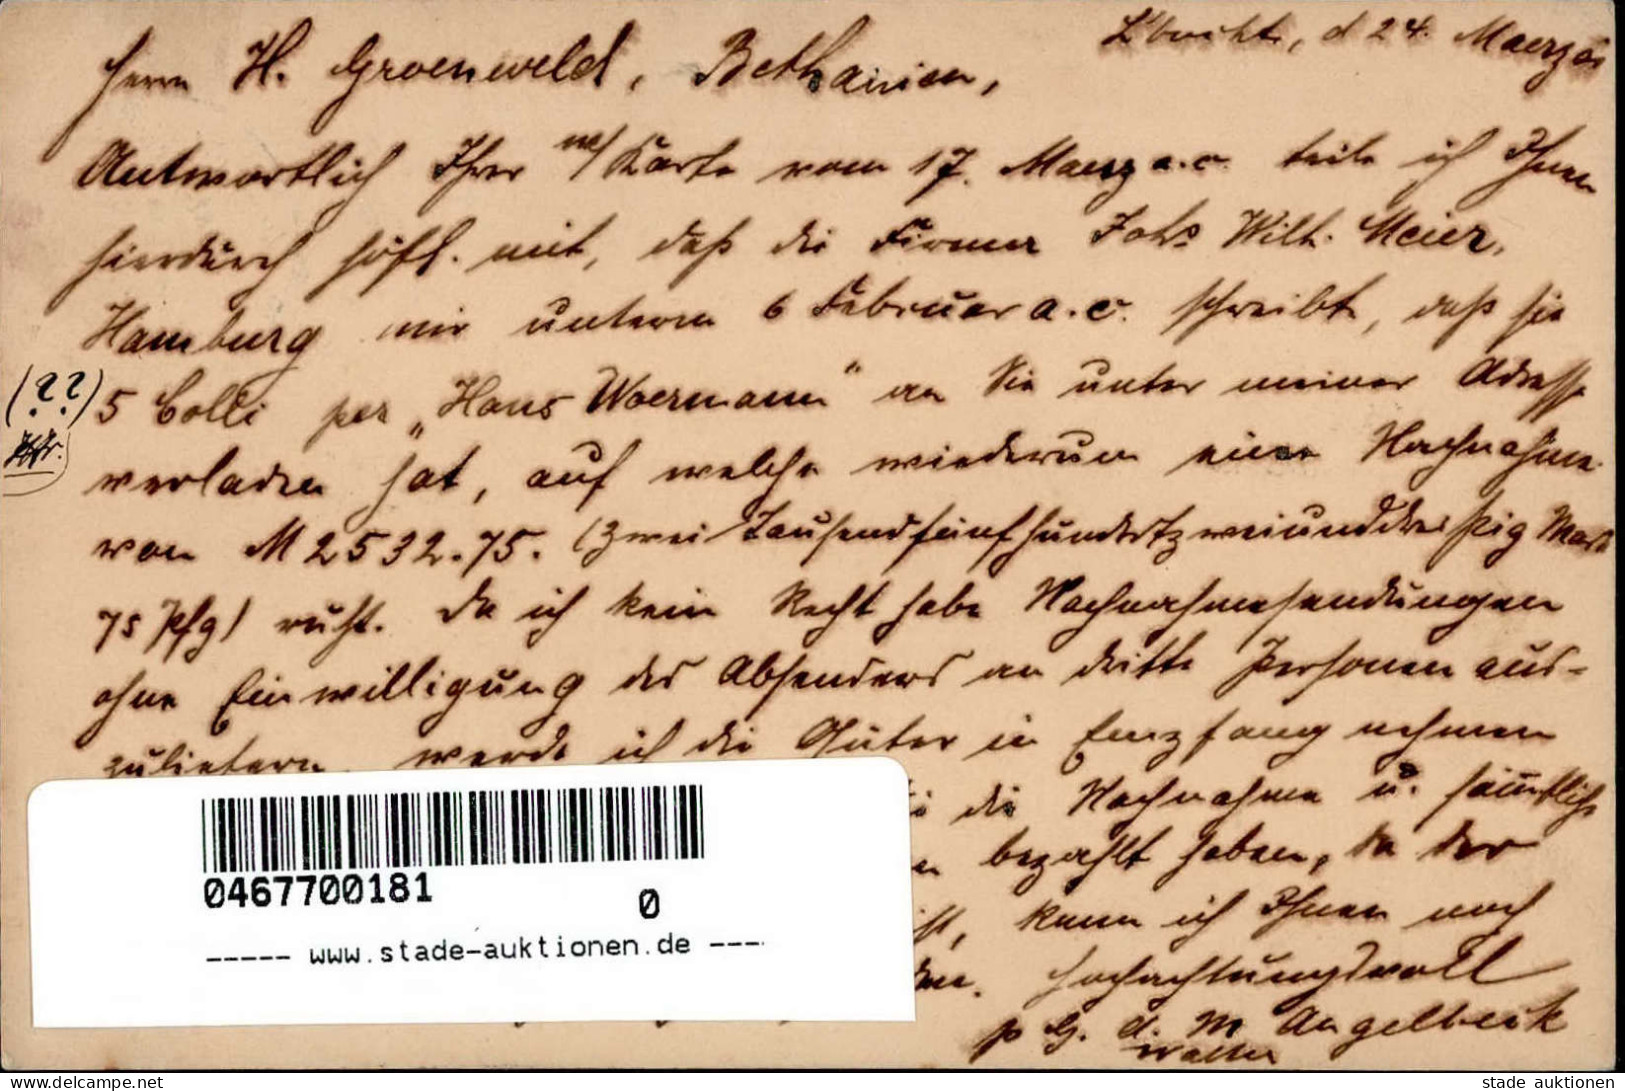 L'bucht, d 24. Maerz
Herrn H. Groenweld, Bethanien,
Antwortlich Ihrer w/ Karte vom 17. Maerz a.c. teile ich Ihnen
hierdurch höfl. mit, daß die Firma Johs Wilh. Meier,
Hamburg mir unterm 6 Februar a.c. schreibt, daß sie
(??) 5 Colli per „Hans Woermann" an Sie unter meiner Adresse
verladen hat, auf welche wiederum eine Nachnahme
von M 2532.75. (Zwei Tausendfünfhundertzweiunddreißig Mark
75 Pfg) ruht. Da ich kein Recht habe Nachnahmesendungen
ohne Einwilligung des Absenders an dritte Personen aus-
zuliefern, werde ich die Güter in Empfang nehmen
die Nachnahme u. sämtliche
bezahlt haben, da der
kann ich Ihnen noch
Hochachtungsvoll
p G. d. M Angelbeck
Walter
0467700181
0
----- www.stade-auktionen.de ----
www.delcampe.net
stade auktionen